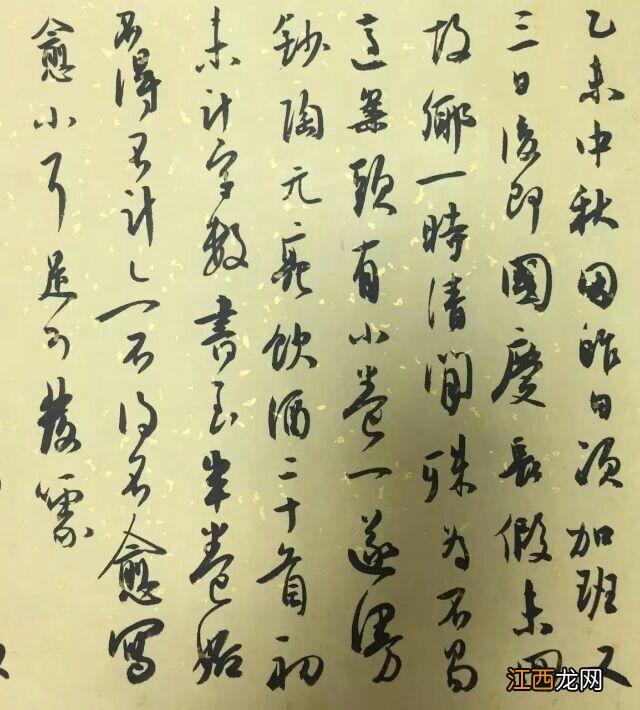 乙未中秋因昨日須加班又
三日後即國慶長假未回
故鄉一時清閒殊為不易
適案頭有小卷一遂漫
鈔陶元亮飲酒二十首初
未計字數書至半卷始
不得不計之而不得不愈寫
愈小耳足可發噱
江西龙网